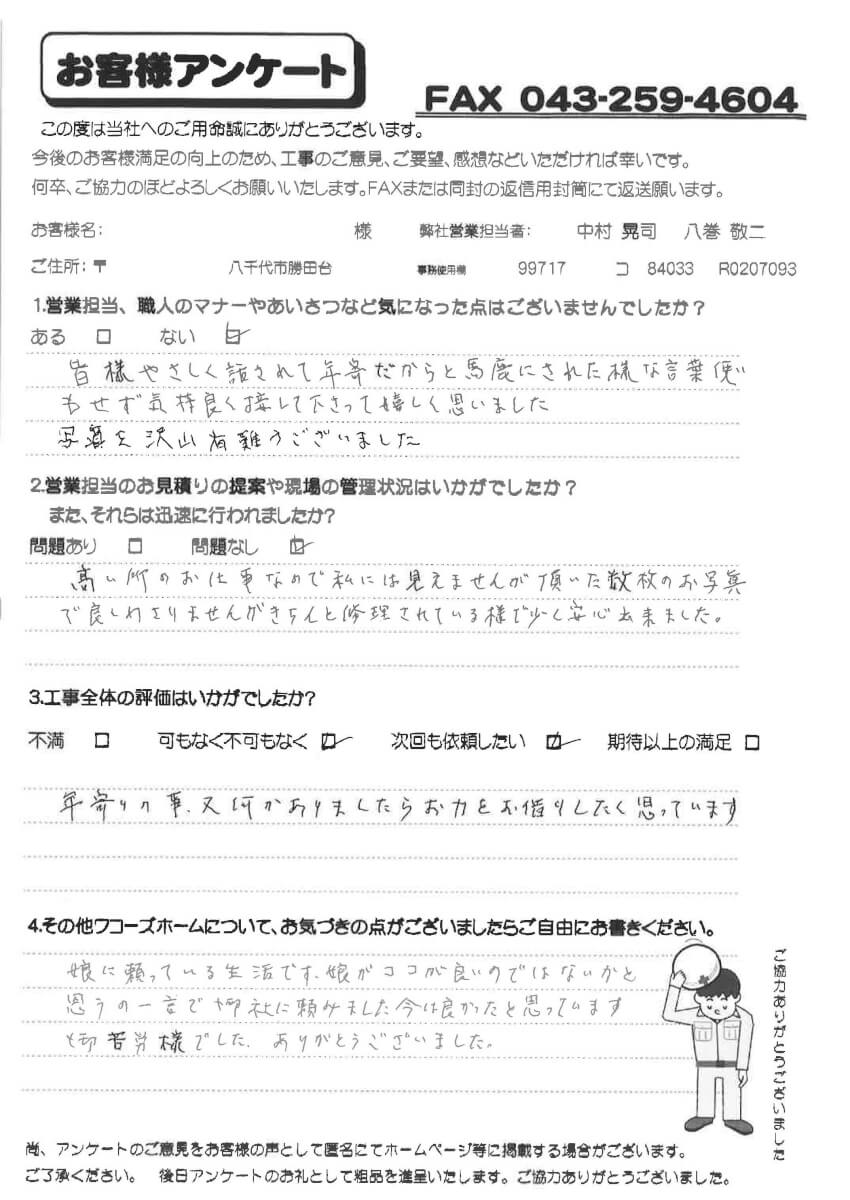 お客様アンケート
FAX 043-259-4604
この度は当社へのご用命誠にありがとうございます。
今後のお客様満足の向上のため、工事のご意見、ご要望、感想などいただければ幸いです。
何卒、ご協力のほどよろしくお願いいたします。FAXまたは同封の返信用封筒にて返送願います。
お客様名: 様 弊社営業担当者: 中村 晃司 八巻 敬二
ご住所:〒 八千代市勝田台 事務使用欄 99717 コ 84033 R0207093
1.営業担当、職人のマナーやあいさつなど気になった点はございませんでしたか？
ある □ ない ☑
皆様やさしく話されて年寄だからと馬鹿にされた様な言葉使い
もせず気持良く接して下さって嬉しく思いました
写真を沢山有難うございました
2.営業担当のお見積りの提案や現場の管理状況はいかがでしたか？
また、それらは迅速に行われましたか?
問題あり □ 問題なし ☑
高い所のお仕事なので私には見えませんが頂いた数枚のお写真
で良しわかりませんがきちんと修理されている様で少し安心出来ました。
3.工事全体の評価はいかがでしたか?
不満 □ 可もなく不可もなく ☑ 次回も依頼したい ☑ 期待以上の満足 □
年寄りの事、又何かありましたらお力をお借りしたく思っています
4.その他ワコーズホームについて、お気づきの点がございましたらご自由にお書きください。
娘に頼っている生活です、娘がココが良いのではないかと
思うの一言で御社に頼みました今は良かったと思っています
御苦労様でした、ありがとうございました。
ご協力ありがとうございました
尚、アンケートのご意見をお客様の声として匿名にてホームページ等に掲載する場合がございます。
ご了承ください。 後日アンケートのお礼として粗品を進呈いたします。ご協力ありがとうございました。